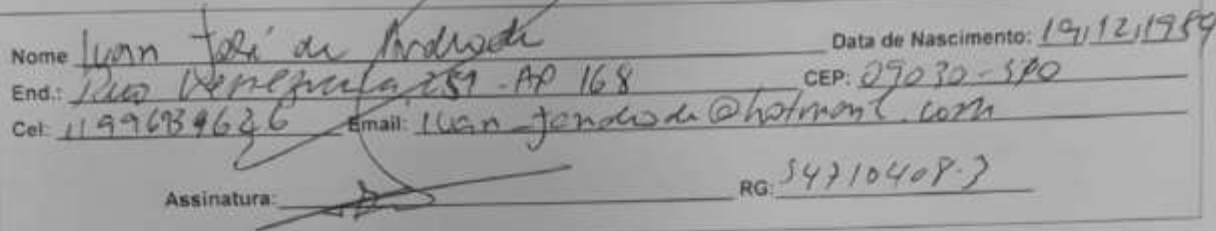 Nome Ivan José de Andrade Data de Nascimento: 19/12/1989
End.: Rua Venezuela, 259 - AP 168 CEP: 09030-
Cel: Email: @hotmail.com
Assinatura: RG: 34710408-3